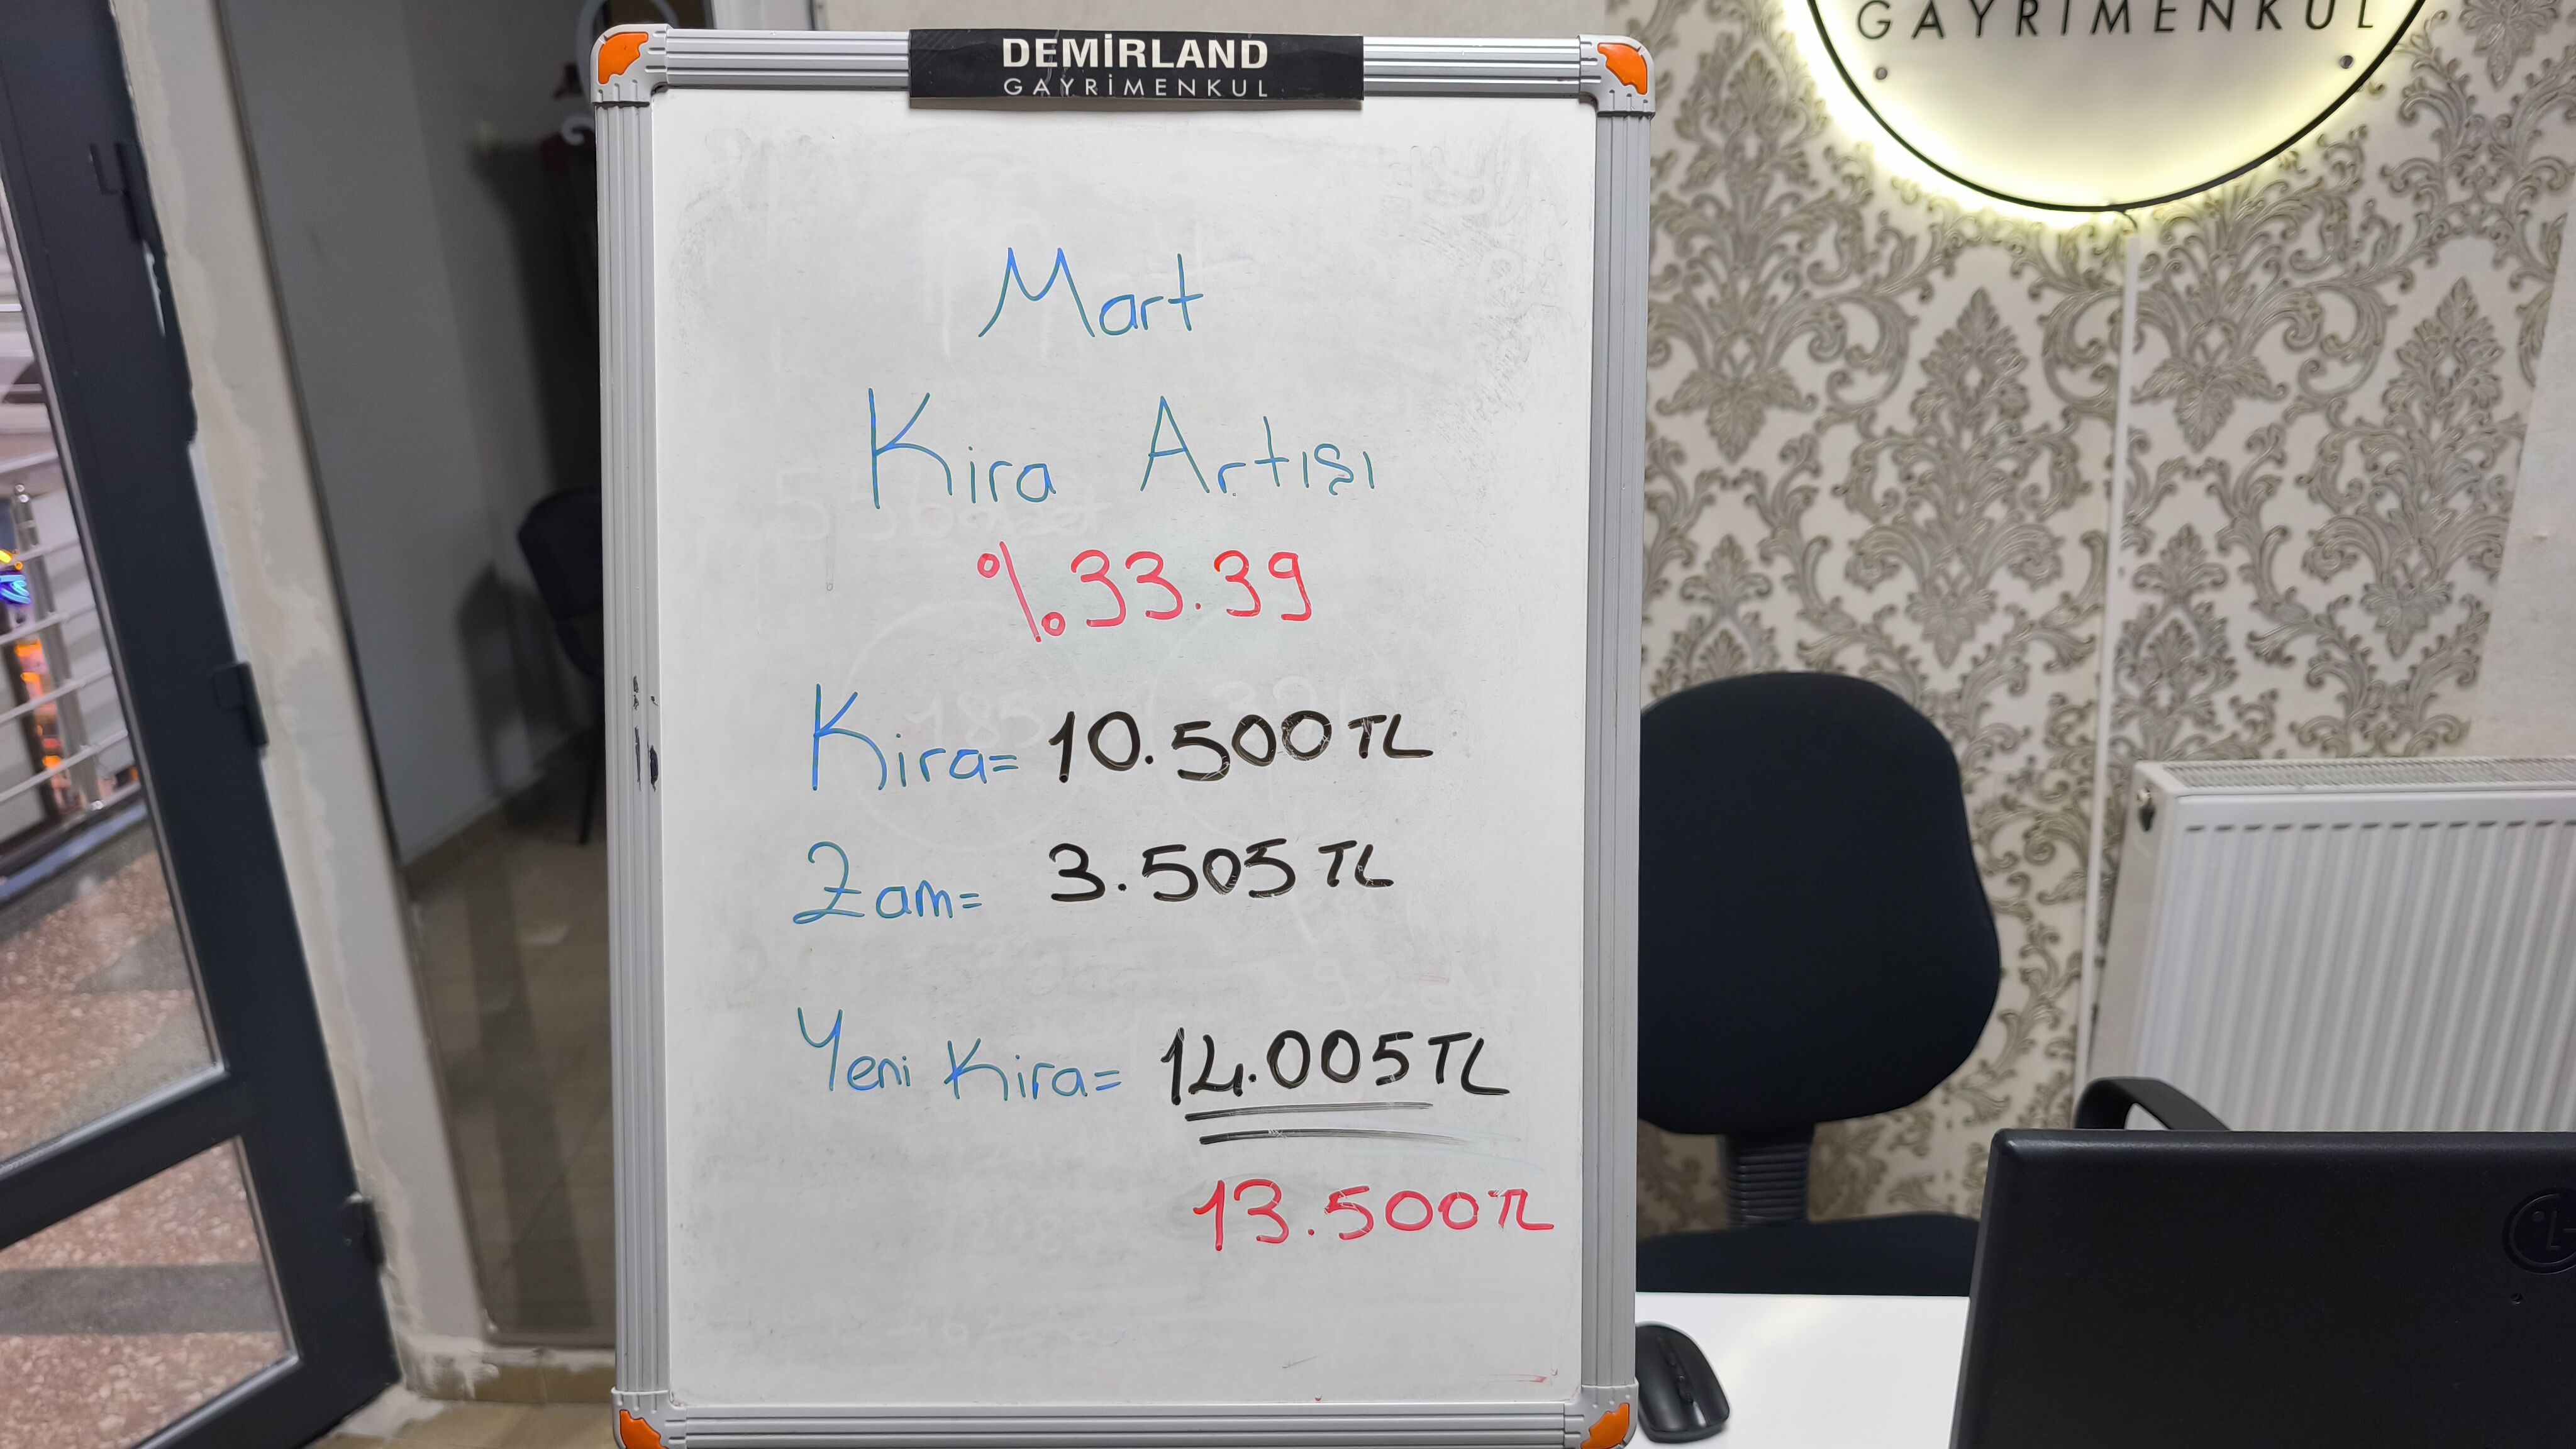 DEMİRLAND
GAYRİMENKUL
GAYRİMENKUL
Mart
Kira Artışı
%33.39
Kira= 10.500 TL
Zam= 3.505 TL
Yeni Kira= 14.005 TL
13.500 TL